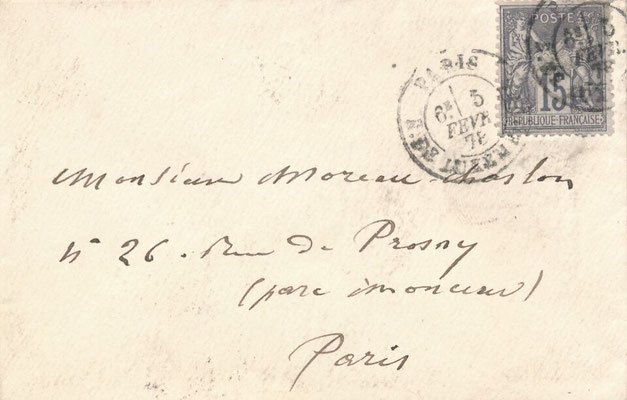 POSTES
15
REPUBLIQUE FRANÇAISE
PARIS
6E 5
FEVR
78
R. DE LUXEM
5
FEVR
Monsieur Moreau-Chaslon
N° 26. Rue de Prosny
(parc Monceau)
Paris